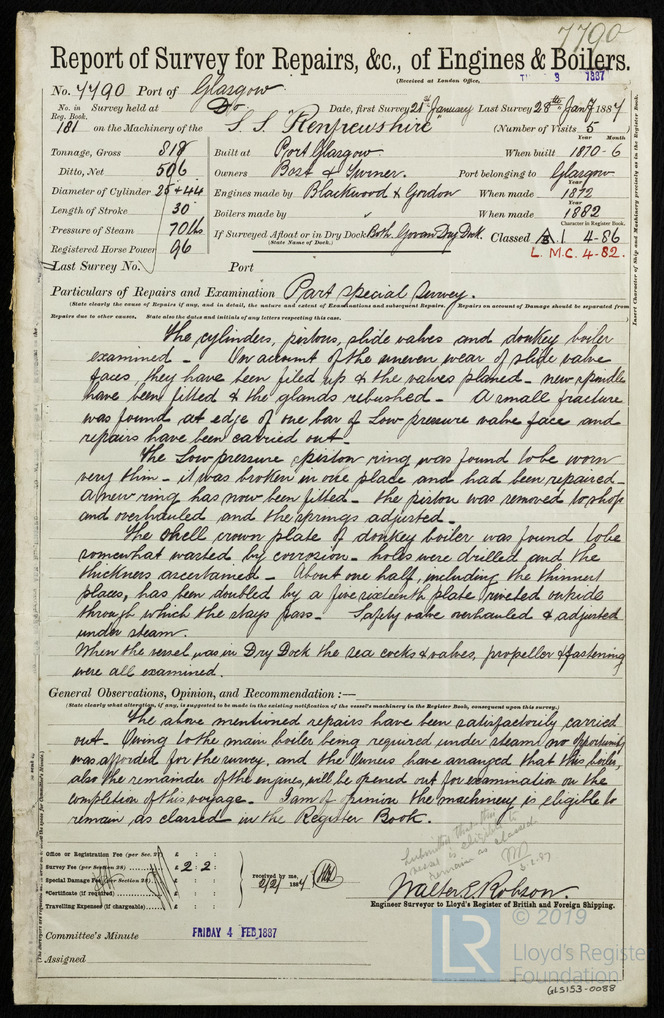 7790
Report of Survey for Repairs, &c., of Engines & Boilers.
(Received at London Office, TH 3 1887
No. 7790 Port of Glasgow
No. in Reg. Book. Survey held at Do Date, first Survey 21st January Last Survey 28th Jany 1887
181 on the Machinery of the S.S. "Renfrewshire" (Number of Visits 5
Year Month
Tonnage, Gross 818 Built at Port Glasgow When built 1870-6
Ditto, Net 506 Owners Best & Turner Port belonging to Glasgow
Year
Diameter of Cylinder 25 + 44 Engines made by Blackwood & Gordon When made 1872
Year
Length of Stroke 30 Boilers made by " When made 1882
Character in Register Book.
Pressure of Steam 70 lbs If Surveyed Afloat or in Dry Dock Both. Govan Dry Dock. Classed A 1 4-86
(State Name of Dock.)
Registered Horse Power 96 L.M.C. 4-82.
Last Survey No. Port
Particulars of Repairs and Examination Part special survey.
(State clearly the cause of Repairs if any, and in detail, the nature and extent of Examinations and subsequent Repairs. Repairs on account of Damage should be separated from
Repairs due to other causes, State also the dates and initials of any letters respecting this case.)
The cylinders, pistons, slide valves and donkey boiler
examined - On account of the uneven wear of slide valve
faces, they have been filed up & the valves planed - new spindles
have been fitted & the glands rebushed - A small fracture
was found at edge of one bar of Low pressure valve face and
repairs have been carried out -
The Low pressure piston ring was found to be worn
very thin - it was broken in one place and had been repaired -
A new ring has now been fitted - the piston was removed to shop
and overhauled and the springs adjusted -
The shell crown plate of donkey boiler was found to be
somewhat wasted by corrosion - holes were drilled and the
thickness ascertained - About one half, including the thinnest
places, has been doubled by a five sixteenth plate riveted outside
through which the stays pass - Safety valve overhauled & adjusted
under steam.
When the vessel was in Dry Dock the sea cocks & valves, propeller & fastenings
were all examined.
General Observations, Opinion, and Recommendation :—
(State clearly what alteration, if any, is suggested to be made in the existing notification of the vessel's machinery in the Register Book, consequent upon this survey.)
The above mentioned repairs have been satisfactorily carried
out - Owing to the main boiler being required under steam no opportunity
was afforded for the survey, and the Owners have arranged that this boiler,
also the remainder of the engines, will be opened out for examination on the
completion of this voyage. I am of opinion the machinery is eligible to
remain as classed in the Register Book.
Submitted that this
vessel is eligible to
remain as classed
3.2.87
Office or Registration Fee (per Sec. 27) £ : :
Survey Fee (per Section 28) £ 2 : 2 :
Special Damage Fee (per Section 28) £ : :
*Certificate (if required) £ : :
Travelling Expenses (if chargeable) £ : :
received by me, 2/2/ 1887
Walter E. Robson.
Engineer Surveyor to Lloyd's Register of British and Foreign Shipping.
Committee's Minute FRIDAY 4 FEB 1887
Assigned
Insert Character of Ship and Machinery precisely as in the Register Book.
© 2019
LR
Lloyd's Register
Foundation
GLS153-0088